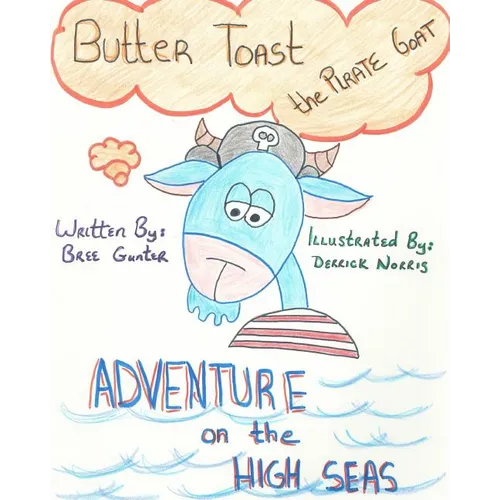 Butter Toast
the Pirate Goat
Written By:
Bree Gunter
Illustrated By:
Derrick Norris
ADVENTURE
on the
HIGH SEAS